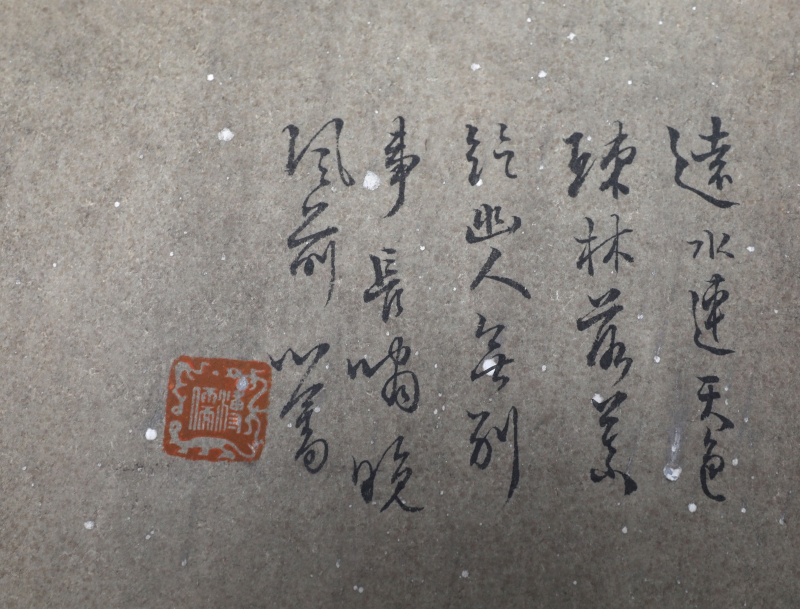 遠水連天色
疎林落葉
鈴幽人無別
事長嘯晚
風前心畬
溥儒